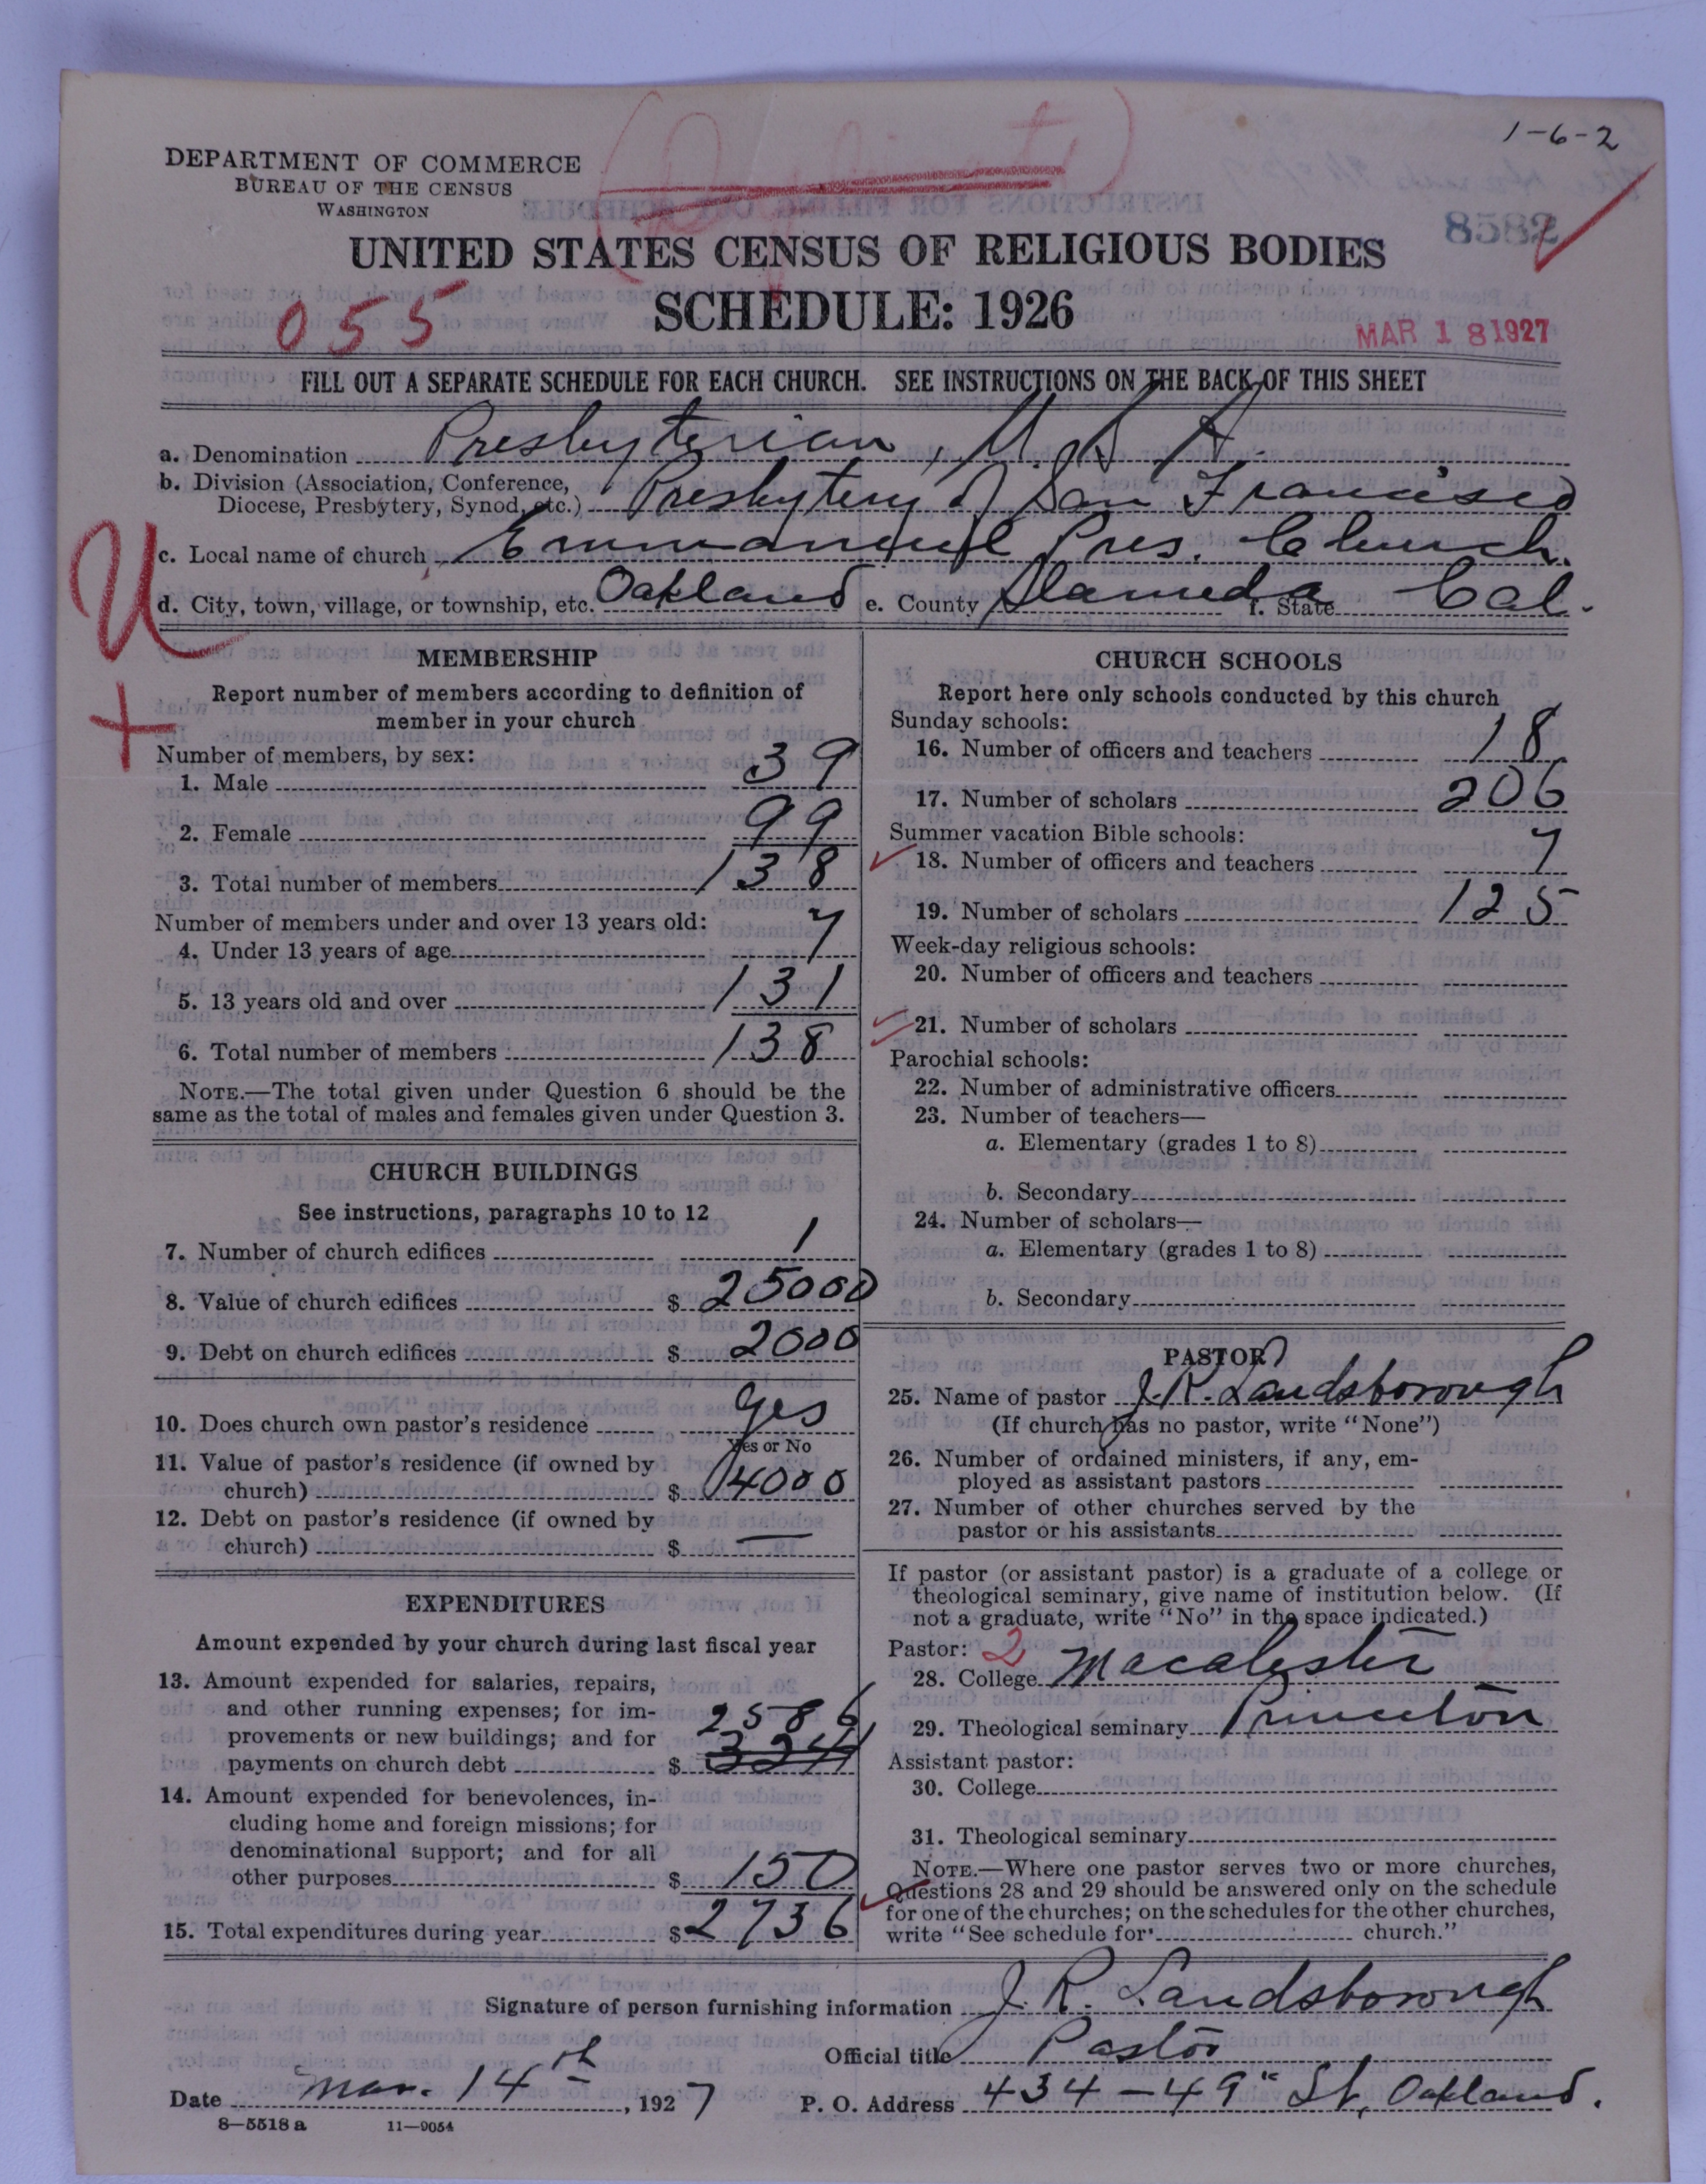 1-6-2
DEPARTMENT OF COMMERCE
BUREAU OF THE CENSUS
WASHINGTON
8582
UNITED STATES CENSUS OF RELIGIOUS BODIES
SCHEDULE: 1926
055
MAR 18 1927
FILL OUT A SEPARATE SCHEDULE FOR EACH CHURCH. SEE INSTRUCTIONS ON THE BACK OF THIS SHEET
a. Denomination Presbyterian, U.S.A.
b. Division (Association, Conference,
Diocese, Presbytery, Synod, etc.) Presbytery of San Francisco
c. Local name of church Emmanuel Pres. Church.
d. City, town, village, or township, etc. Oakland e. County Alameda f. State Cal.
U
+
MEMBERSHIP
Report number of members according to definition of
member in your church
Number of members, by sex:
1. Male 39
2. Female 99
3. Total number of members 138
Number of members under and over 13 years old:
4. Under 13 years of age 7
5. 13 years old and over 131
6. Total number of members 138
NOTE.—The total given under Question 6 should be the
same as the total of males and females given under Question 3.
CHURCH BUILDINGS
See instructions, paragraphs 10 to 12
7. Number of church edifices 1
8. Value of church edifices $ 25000
9. Debt on church edifices $ 2000
10. Does church own pastor's residence Yes
Yes or No
11. Value of pastor's residence (if owned by
church) $ 4000
12. Debt on pastor's residence (if owned by
church) $ —
EXPENDITURES
Amount expended by your church during last fiscal year
13. Amount expended for salaries, repairs,
and other running expenses; for im-
provements or new buildings; and for 2586
payments on church debt $
14. Amount expended for benevolences, in-
cluding home and foreign missions; for
denominational support; and for all
other purposes $ 150
15. Total expenditures during year $ 2736
CHURCH SCHOOLS
Report here only schools conducted by this church
Sunday schools:
16. Number of officers and teachers 18
17. Number of scholars 206
Summer vacation Bible schools:
18. Number of officers and teachers 7
19. Number of scholars 125
Week-day religious schools:
20. Number of officers and teachers
21. Number of scholars
Parochial schools:
22. Number of administrative officers
23. Number of teachers—
a. Elementary (grades 1 to 8)
b. Secondary
24. Number of scholars—
a. Elementary (grades 1 to 8)
b. Secondary
PASTOR
25. Name of pastor J. R. Landsborough
(If church has no pastor, write "None")
26. Number of ordained ministers, if any, em-
ployed as assistant pastors
27. Number of other churches served by the
pastor or his assistants
If pastor (or assistant pastor) is a graduate of a college or
theological seminary, give name of institution below. (If
not a graduate, write "No" in the space indicated.)
Pastor: 2
28. College Macalester
29. Theological seminary Princeton
Assistant pastor:
30. College
31. Theological seminary
NOTE.—Where one pastor serves two or more churches,
Questions 28 and 29 should be answered only on the schedule
for one of the churches; on the schedules for the other churches,
write "See schedule for church."
Signature of person furnishing information J. R. Landsborough
Official title Pastor
Date Mar. 14th, 1927 P. O. Address 434-49" St, Oakland.
8—5518 a 11—9054